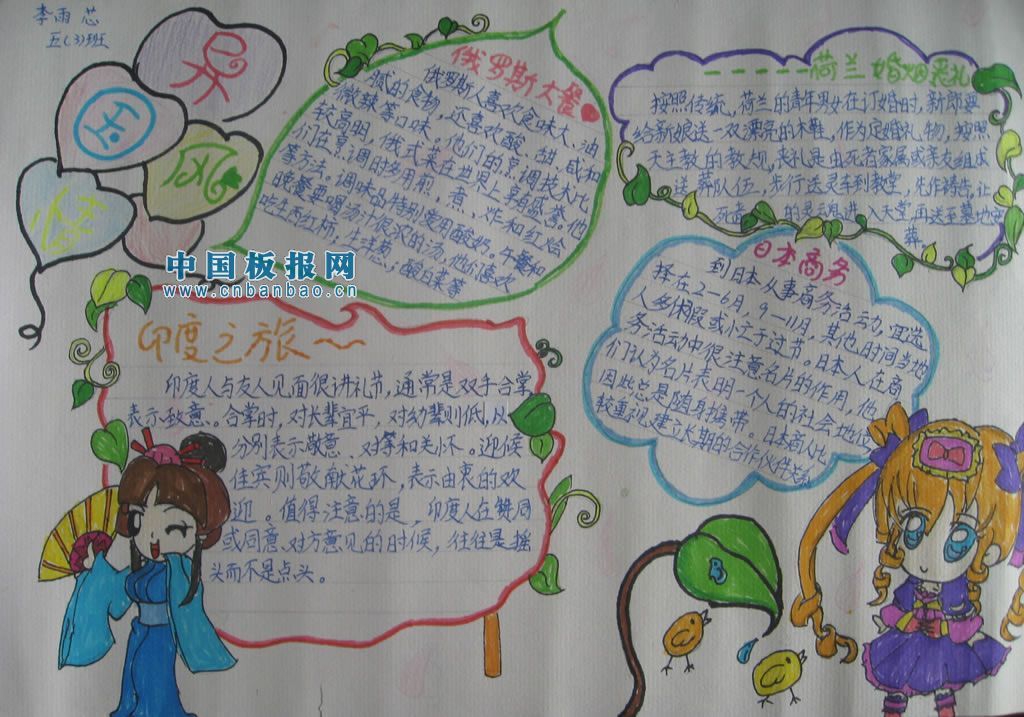 李雨芯
五(3)班
异
国
风
情
中国板报网
www.cnbanbao.cn
俄罗斯大餐
俄罗斯人喜欢食味大、油
腻的食物，还喜欢酸、甜、咸和
微辣等口味。他们的烹调技术比
较高明，俄式菜在世界上享有盛誉。他
们在烹调时多用煎、煮、炸和红烩
等方法。调味品特别爱用酸奶。午餐和
晚餐要喝汤汁很浓的汤，他们喜欢
吃生西红柿、生洋葱、酸白菜等
-----荷兰婚姻丧礼
按照传统，荷兰的青年男女在订婚时，新郎要
给新娘送一双漂亮的木鞋，作为定婚礼物，按照
天主教的教规，丧礼是由死者家属或亲友组成
送葬队伍，步行送灵车到教堂，先作祷告，让
死者的灵魂进入天堂再送至墓地安
葬。
印度之旅~~
印度人与友人见面很讲礼节，通常是双手合掌
表示致意。合掌时，对长辈宜平，对幼辈则低，从
分别表示敬意、对等和关怀。迎候
佳宾则敬献花环，表示由衷的欢
迎。值得注意的是，印度人在赞同
或同意对方意见的时候，往往是摇
头而不是点头。
日本商务
到日本从事商务活动，宜选
择在2-6月，9-11月，其他时间当地
人多休假或忙于过节。日本人在商
务活动中很注意名片的作用，他
们认为名片表明一个人的社会地位，
因此总是随身携带。日本商人比
较重视建立长期的合作伙伴关系